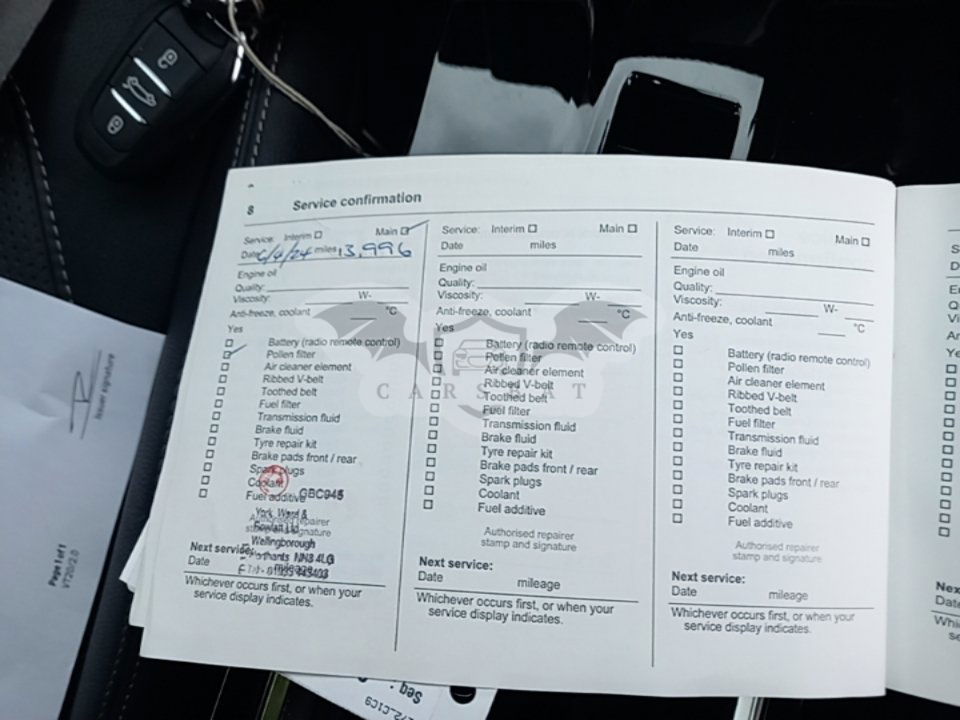 8 Service confirmation
Service: Interim Main
Date 6/9/24 miles 13,996
Engine oil
Quality:
Viscosity: W-
Anti-freeze, coolant °C
Yes
Battery (radio remote control)
Pollen filter
Air cleaner element
Ribbed V-belt
Toothed belt
Fuel filter
Transmission fluid
Brake fluid
Tyre repair kit
Brake pads front / rear
Spark plugs
Coolant
Fuel additive GBC945
York, Ward &
Rowlatt Ltd
Authorised repairer
stamp and signature
Wellingborough
Northants NN8 4LG
Next service:
Date mileage
Whichever occurs first, or when your
service display indicates.
Service: Interim Main
Date miles
Engine oil
Quality:
Viscosity: W-
Anti-freeze, coolant °C
Yes
Battery (radio remote control)
Pollen filter
Air cleaner element
Ribbed V-belt
Toothed belt
Fuel filter
Transmission fluid
Brake fluid
Tyre repair kit
Brake pads front / rear
Spark plugs
Coolant
Fuel additive
Authorised repairer
stamp and signature
Next service:
Date mileage
Whichever occurs first, or when your
service display indicates.
Service: Interim Main
Date miles
Engine oil
Quality:
Viscosity: W-
Anti-freeze, coolant °C
Yes
Battery (radio remote control)
Pollen filter
Air cleaner element
Ribbed V-belt
Toothed belt
Fuel filter
Transmission fluid
Brake fluid
Tyre repair kit
Brake pads front / rear
Spark plugs
Coolant
Fuel additive
Authorised repairer
stamp and signature
Next service:
Date mileage
Whichever occurs first, or when your
service display indicates.
Issuer signature
Page 1 of 1
VT20/2.0
Seq :
CARSBAT